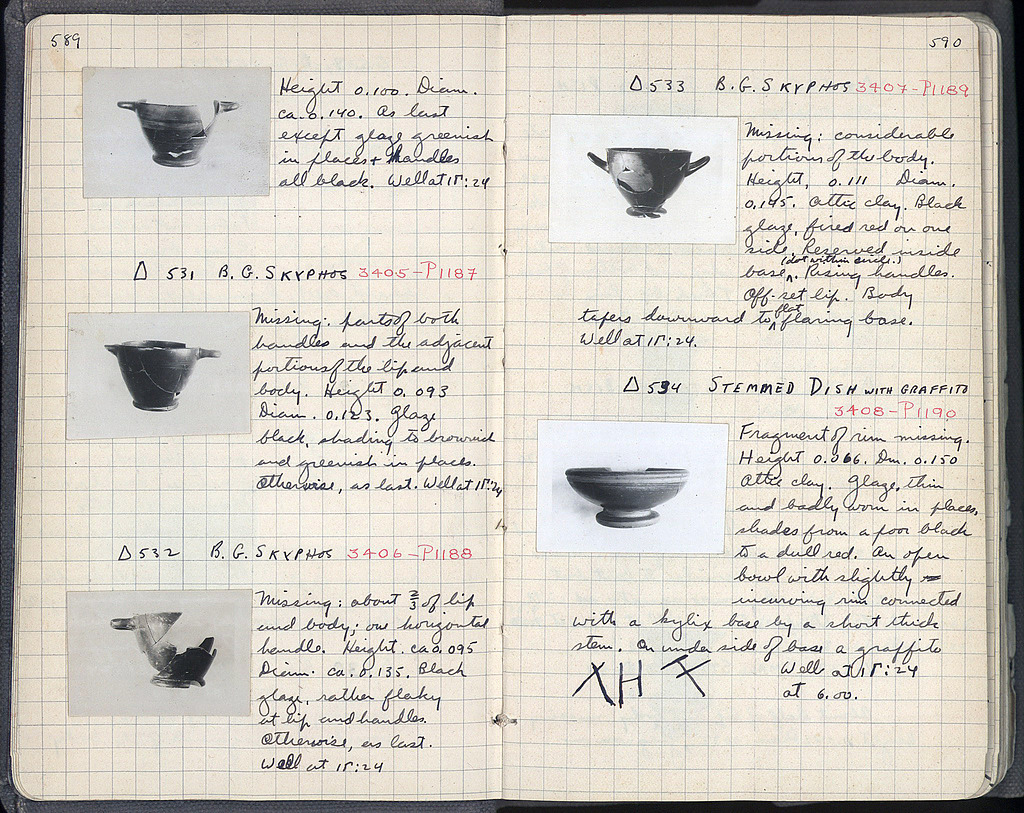 589
Height 0.100. Diam.
ca. 0.140. As last
except glaze greenish
in places + handles
all black. Well at ΙΓ:24
Δ 531 B. G. SKYPHOS 3405-P1187
Missing: parts of both
handles and the adjacent
portions of the lip and
body. Height 0.093
Diam. 0.123. Glaze
black, shading to brownish
and greenish in places.
Otherwise, as last. Well at ΙΓ:24
Δ 532 B. G. SKYPHOS 3406-P1188
Missing: about 2/3 of lip
and body; one horizontal
handle. Height. ca 0.095
Diam. ca. 0.135. Black
glaze, rather flaky
at lip and handles.
Otherwise, as last.
Well at ΙΓ:24
590
Δ 533 B. G. SKYPHOS 3407-P1189
Missing: considerable
portions of the body.
Height, 0.111 Diam.
0.145. Attic clay. Black
glaze, fired red on one
side. Reserved inside
(dot within circle.)
base ^. Rising handles.
Off-set lip. Body
flat
tapers downward to ^ flaring base.
Well at ΙΓ:24.
Δ 534 STEMMED DISH WITH GRAFFITO
3408-P1190
Fragment of rim missing.
Height 0.066. Dm. 0.150
Attic clay. Glaze, thin
and badly worn in places,
shades from a poor black
to a dull red. An open
bowl with slightly
incurving rim connected
with a kylix base by a short thick
stem. On under side of base a graffito
Well at ΙΓ:24
at 6.00.